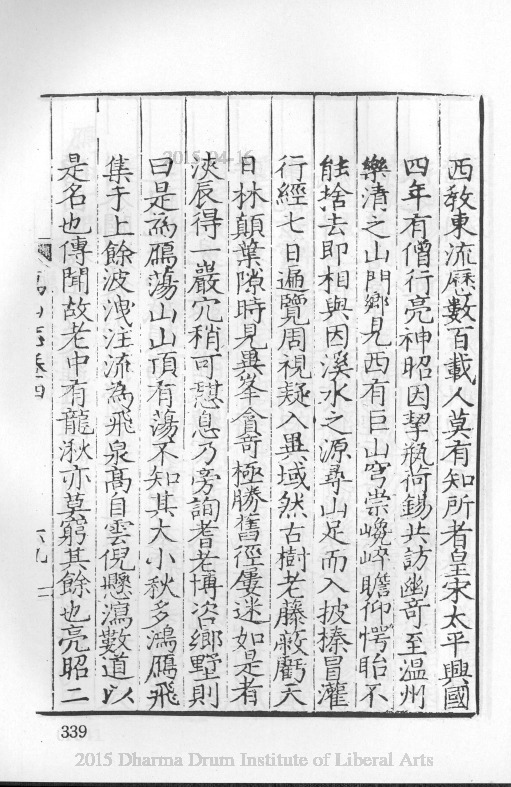 西教東流歷數百載人莫有知所者皇宋太平興國
四年有僧行亮神昭因挈瓶荷錫共訪幽奇至温州
樂清之山門鄉見西有巨山穹崇巉崪瞻仰愕眙不
能捨去即相與因溪水之源尋山足而入披榛冒灌
行經七日遍覽周視疑入異域然古樹老藤蔽虧天
日林顛葉隙時見異峯貪奇極勝舊徑屢迷如是者
浹辰得一巖穴稍可憇息乃旁詢耆老博咨鄉墅則
曰是為鴈蕩山山頂有蕩不知其大小秋多鴻鴈飛
集于上餘波洩注流為飛泉高自雲倪懸瀉數道以
是名也傳聞故老中有龍湫亦莫窮其餘也亮昭二
山志卷四
339
2015-04-16
2015 Dharma Drum Institute of Liberal Arts